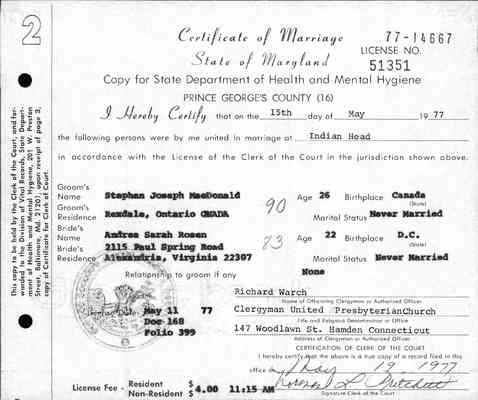 2
Certificate of Marriage
77-14667
State of Maryland
LICENSE NO.
51351
Copy for State Department of Health and Mental Hygiene
PRINCE GEORGE'S COUNTY (16)
I Hereby Certify that on the 15th day of May 1977
the following persons were by me united in marriage at Indian Head
in accordance with the License of the Clerk of the Court in the jurisdiction shown above.
Groom's Name Stephen Joseph MacDonald Age 26 Birthplace Canada
(State)
Groom's Residence Rexdale, Ontario CANADA 90 Marital Status Never Married
Bride's Name Andrea Sarah Rosen 83 Age 22 Birthplace D.C.
(State)
Bride's Residence 2115 Paul Spring Road
Alexandria, Virginia 22307 Marital Status Never Married
Relationship to groom if any None
Richard Warch
Name of Officiating Clergyman or Authorized Officer
May 11 77
Clergyman United PresbyterianChurch
Title and Religious Denomination or Office
Doc 168
Folio 399
147 Woodlawn St. Hamden Connecticut
Address of Clergyman or Authorized Officer
CERTIFICATION OF CLERK OF THE COURT
I hereby certify that the above is a true copy of a record filed in this
office on May 19 1977
License Fee - Resident
Non-Resident $ $4.00 11:15 AM
Signature Clerk of the Court
This copy to be held by the Clerk of the Court, and forwarded to the Division of Vital Records, State Department of Health and Mental Hygiene, 201 W. Preston Street, Baltimore, Md. 21201, upon receipt of page 3, copy of Certificate for Clerk of Court.